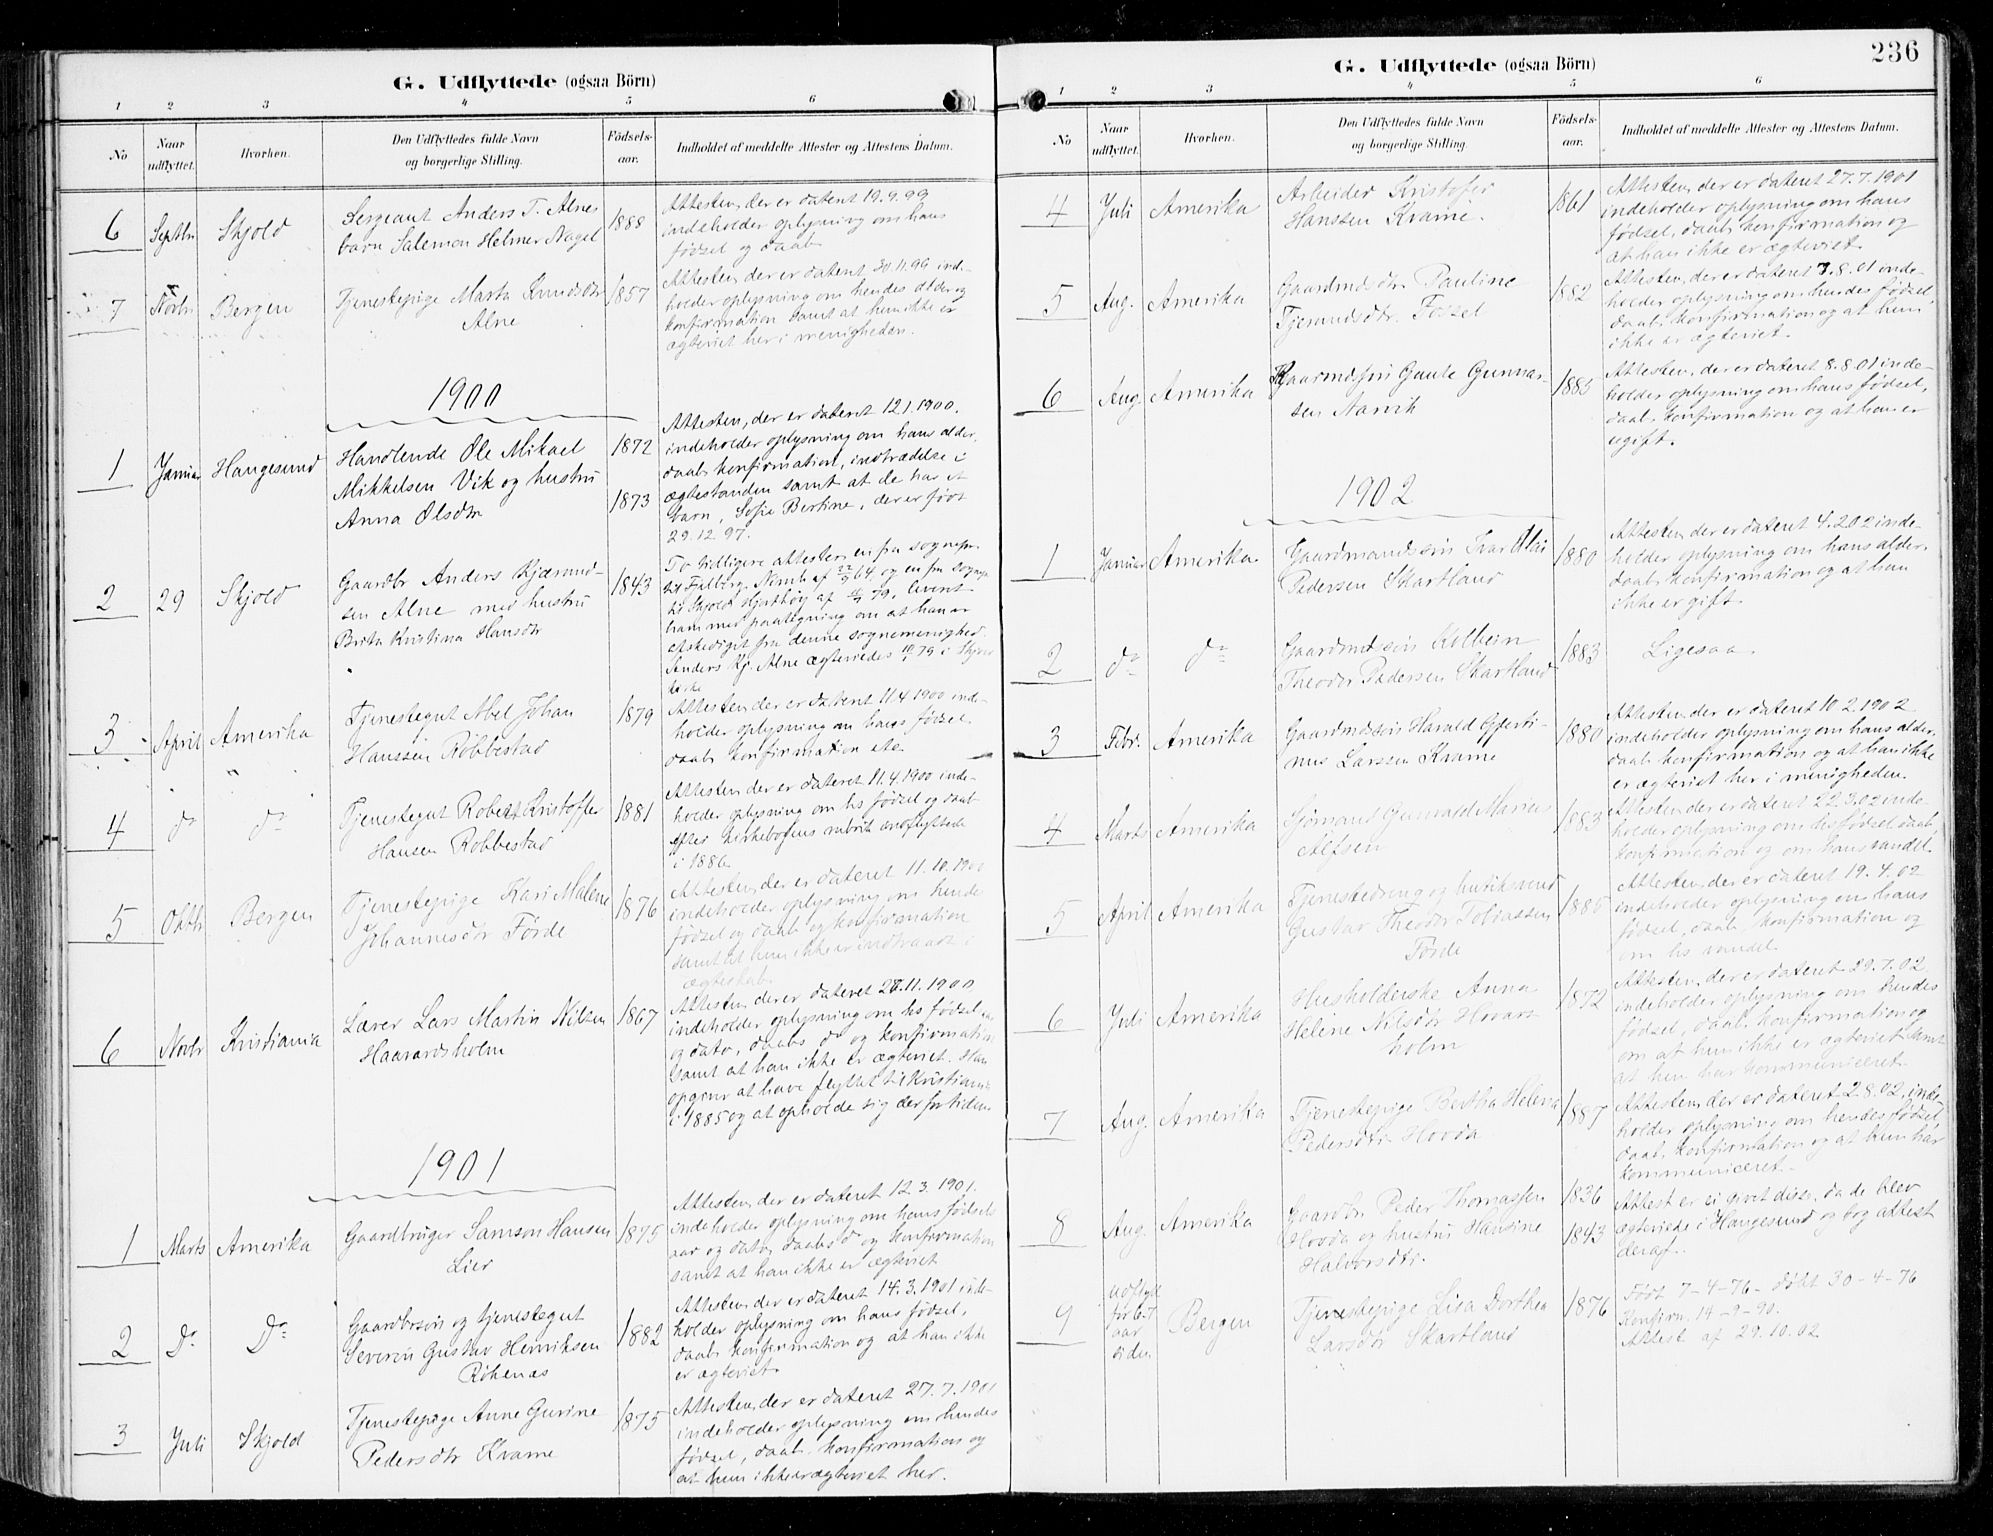 G. Udflyttede (ogsaa Börn)
1 2 3 4 5 6
No
Naar udflyttet.
Hvorhen.
Den Udflyttedes fulde Navn og borgerlige Stilling.
Födsels-aar.
Indholdet af meddelte Attester og Attestens Datum.
6 Septbr Skjold
Sergeant Anders T. Alnes
barn Salemon Helmer Nagel
1888
Attesten, der er dateret 19.9.99
indeholder oplysning om hans
fødsel og daab
7 Novbr Bergen
Tjenestepige Marta Knudsdtr
Alne
1857
Attesten, der er dateret 30.11.99 inde-
holder oplysning om hendes alder og
konfirmation samt at hun ikke er
ægteviet her i menigheden.
1900
1 Januar Haugesund
Handlende Ole Mikael
Mikkelsen Vik og hustru
Anna Olsdtr
1872
1873
Attesten, der er dateret 12.1.1900.
indeholder oplysning om hans alder,
daab, konfirmation, indtrædelse i
ægtestanden samt at de har et
barn, Sofie Bertine, der er født
29.12.97.
2 29 Skjold
Gaardbr Anders Kjærand-
sen Alne med hustru
Brita Kristina Hansdtr
1843
To tidligere attester, en fra sognepr.
til Fjelberg og en fra sognepr
til Skjold af 79, levert
ham med paategning om at han er
afskediget fra denne sognemenighed.
Anders Kj. Alne ægteviedes 79 i Skjold
kirke
3 April Amerika
Tjenestegut Abel Johan
Hanssen Robbestad
1879
Attesten, der er dateret 11.4.1900 inde-
holder oplysning om hans fødsel,
daab konfirmation etc.
4 do do
Tjenestegut Robert Kristoffer
Hansen Robbestad
1881
Attesten, der er dateret 11.4.1900 inde-
holder oplysning om hs fødsel og daab
efter kirkebogens rubrik indflyttede
i 1886.
5 Oktbr Bergen
Tjenestepige Kari Malene
Johannesdtr Førde
1876
Attesten, der er dateret 11.10.1900
indeholder oplysning om hende
fødsel og daab og konfirmation
samt at hun ikke er indtraadt i
ægteskab.
6 Novbr Kristiania
Lærer Lars Martin Nilsen
Haavardsholm
1867
Attesten, der er dateret 27.11.1900
indeholder oplysning om hs fødsel
og dato, daabs do og konfirmation
samt at han ikke er ægteviet. Han
opgives at have flyttet til Kristiania
i 1885 og at opholde sig der for tiden
1901
1 Marts Amerika
Gaardbruger Samson Hansen
Lier
1875
Attesten, der er dateret 12.3.1901.
indeholder oplysning om hans fødsels
aar og dato, daabs d og konfirmation
samt at han ikke er ægteviet
2 Do Do
Gaardbrsøn og tjenestegut
Severin Gustav Henriksen
Røkenæs
1882
Attesten, der er dateret 14.3.1901 inde-
holder oplysning om hans fødsel,
daab, konfirmation og at han ikke
er ægteviet.
3 Juli Skjold
Tjenestepige Anne Gurine
Pedersdtr Kvame
1875
Attesten, der er dateret 27.7.1901
indeholder oplysning om hendes
fødsel, daab, konfirmation og
at hun ikke er ægteviet her.
236
G. Udflyttede (ogsaa Börn)
1 2 3 4 5 6
No
Naar udflyttet.
Hvorhen.
Den Udflyttedes fulde Navn og borgerlige Stilling.
Födsels-aar.
Indholdet af meddelte Attester og Attestens Datum.
4 Juli Amerika
Arbeider Kristofer
Hanssen Kvame.
1861
Attesten, der er dateret 27.7.1901
indeholder oplysning om hans
fødsel, daab, konfirmation og
at han ikke er ægteviet.
5 Aug. Amerika
Gaardmdsdtr. Pauline
Tjerandsdtr. Foszel
1882
Attesten, der er dateret 7.8.01 inde-
holder oplysning om hendes fødsel,
daab, konfirmation og at hun
ikke er ægteviet.
6 Aug Amerika
Gaarmdsøn Gaute Gunnar-
sen Narvik
1883
Attesten, der er dateret 8.8.01 inde-
holder oplysning om hans fødsel,
daab, konfirmation og at han er
ugift.
1902
1 Januar Amerika
Gaardmandssøn Ivar Olai
Pedersen Skartland
1880
Attesten, der er dateret 4.2.02 inde-
holder oplysning om hans alder,
daab, konfirmation og at han
ikke er gift.
2 do do
Gaardmdsøn Kolbein
Theodor Pedersen Skartland
1883
Ligesaa.
3 Febr. Amerika
Gaardmdssøn Harald Gjerti-
nus Larssen Kvame
1880
Attesten, der er dateret 10.2.1902
indeholder oplysning om hans alder,
daab, konfirmation og at han ikke
er ægteviet her i menigheden.
4 Marts Amerika
Sjømand Gunvald Marius
Alfsen
1883
Attesten, der er dateret 22.3.02 inde-
holder oplysning om hs fødsel, daab,
konfirmation og om hans vandel.
5 April Amerika
Tjenestedreng og
Gustav Theodor Tobiassen
Førde
1885
Attesten, der er dateret 19.4.02
indeholder oplysning om hans
fødsel, daab, konfirmation og
om hs vandel.
6 Juli Amerika
Husholderske Anna
Helene Nilsdtr Hovars-
holm
1872
Attesten, der er dateret 29.7.02
indeholder oplysning om hendes
fødsel, daab, konfirmation og
om at hun ikke er ægteviet samt
at hun har kommuniceret.
7 Aug. Amerika
Tjenestepige Bertha Helena
Pedersdtr Hovda
1887
Attesten, der er dateret 2.8.02, inde-
holder oplysning om hendes fødsel,
daab, konfirmation og at hun har
kommuniceret.
8 Aug. Amerika
Gaardbr. Peder Thomassen
Hovda og hustru Hansine
Halvorsdtr.
1836
1843
Attest er ei givet disse, da de blev
ægteviede i Haugesund og tog attest
deraf.
9
udflytt
for 6-7
aar
siden
Bergen
Tjenestepige Lisa Dorthea
Larsdtr Skartland
1876
Født 7-4-76 - døbt 30-4-76
Konfirm. 14-9-90.
Attest af 29.10.02